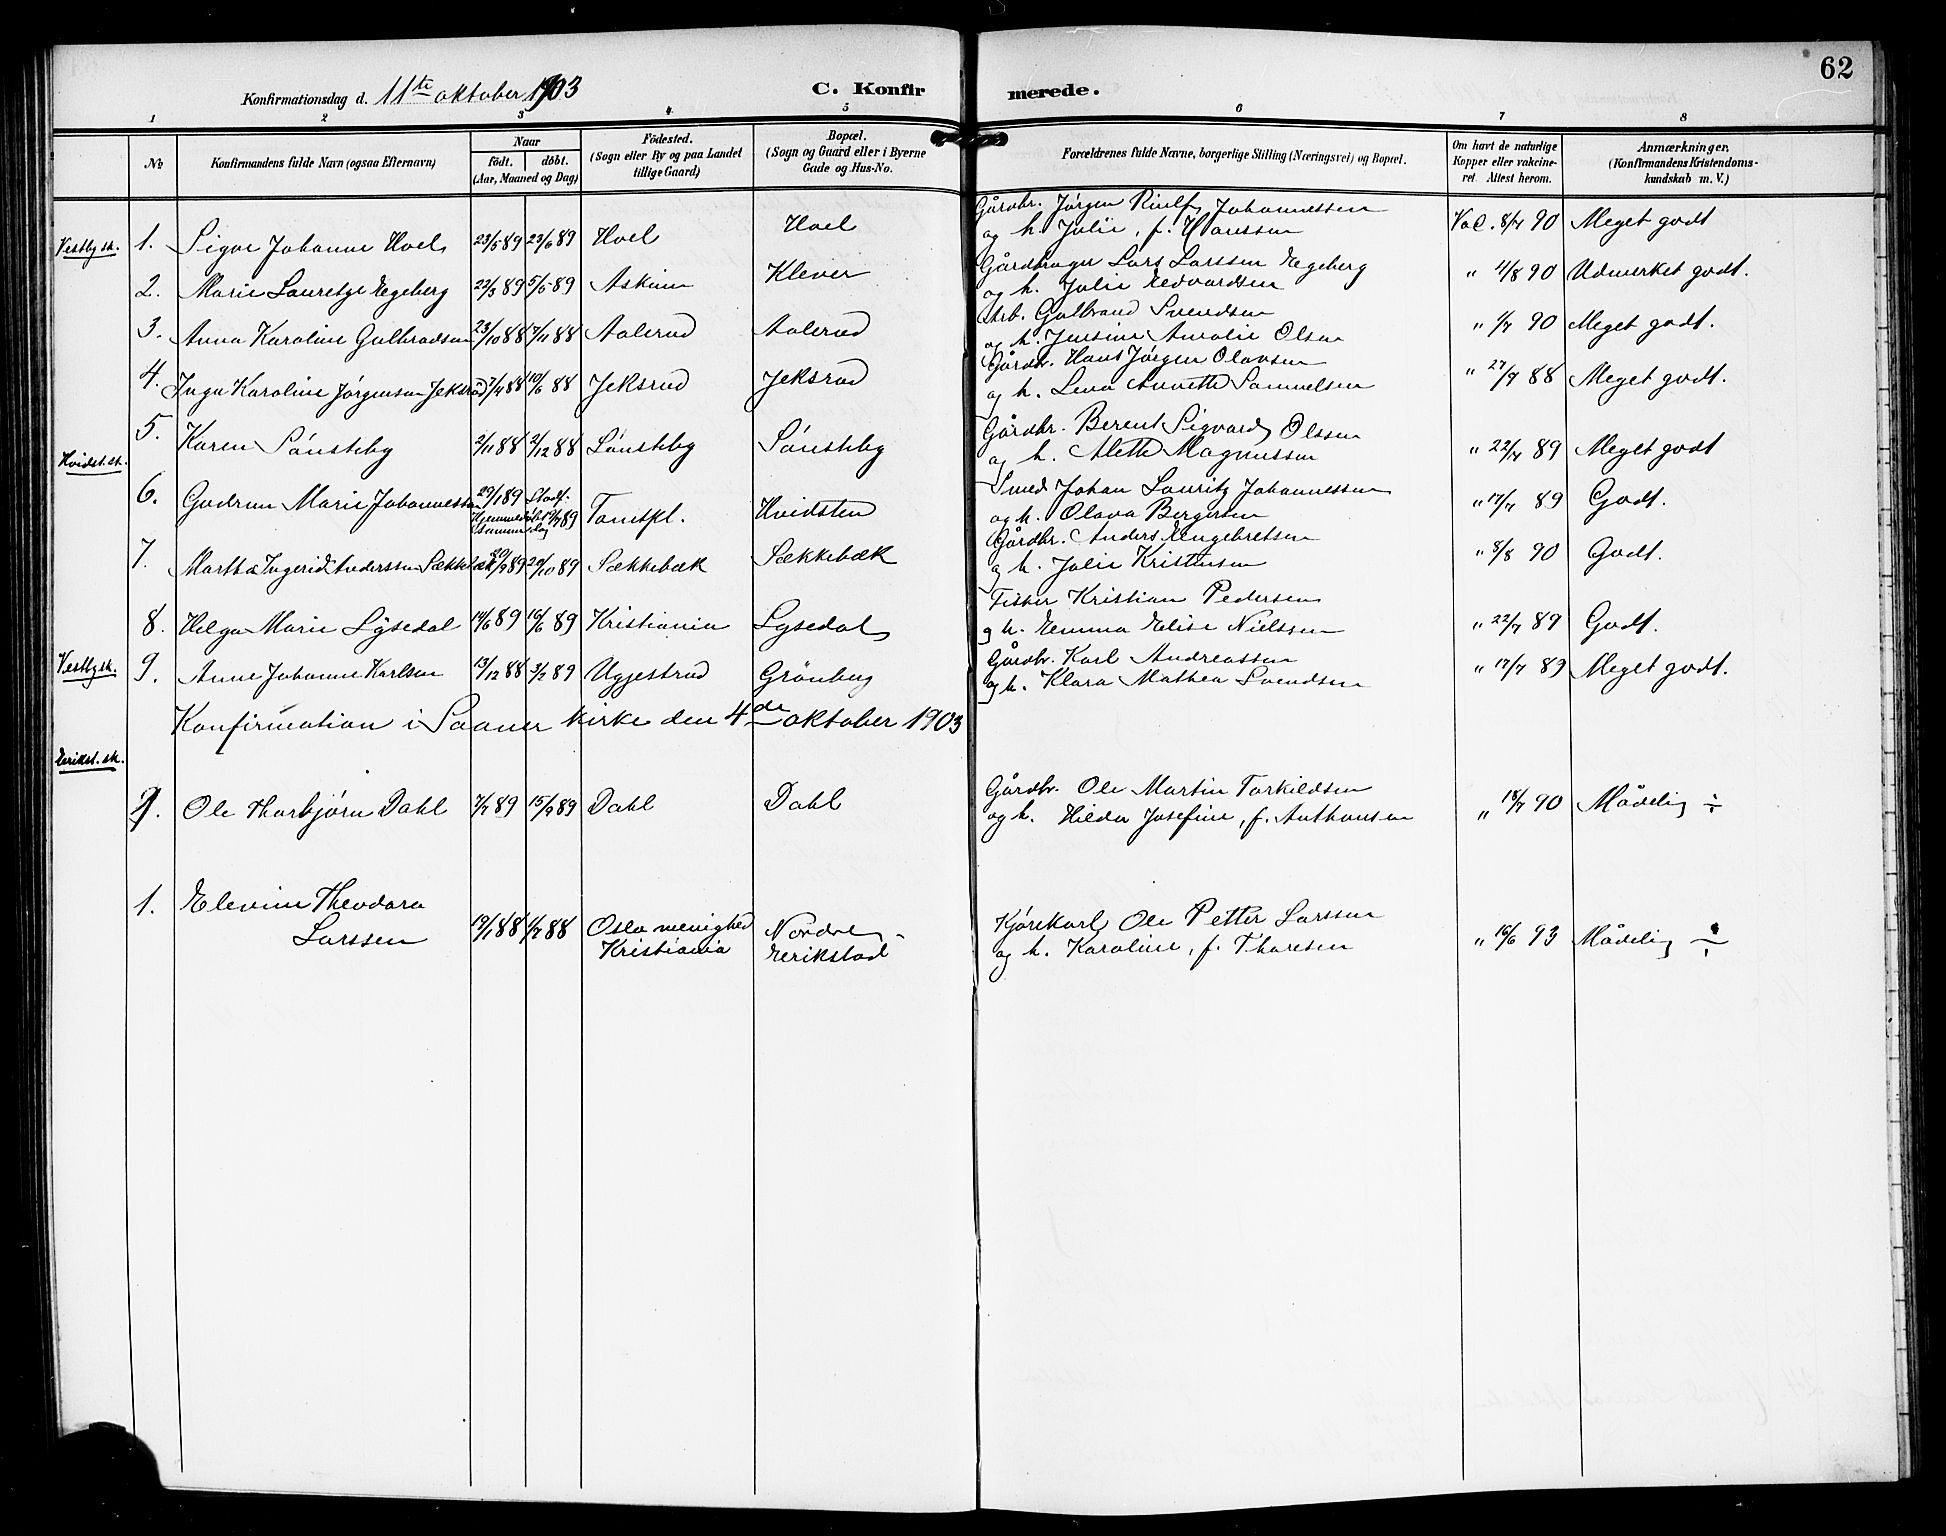 62
Konfirmationsdag d. 11te oktober 1903
C. Konfirmerede.
1 2 3 4 5 6 7 8
No
Konfirmandens fulde Navn (ogsaa Efternavn)
Naar
født. døbt.
(Aar, Maaned og Dag)
Födested.
(Sogn eller By og paa Landet
tillige Gaard)
Bopæl.
(Sogn og Gaard eller i Byerne
Gade og Hus-No.
Forældrenes fulde Navne, borgerlige Stilling (Næringsvei) og Bopæl.
Om havt de naturlige
Kopper eller vakcine-
ret. Attest herom.
Anmærkninger.
(Konfirmandens Kristendoms-
kundskab m. V.)
Vestby sk. 1. Signe Johanne Hvel 23/5 89 23/6 89 Hvel Hvel Gårdbr. Jørgen Johannessen
og h. Julie, f. Vac. 8/7 90 Meget godt
2. Marie Lauretze Egeberg 22/3 89 5/5 89 Askim Klever Gårdbruger Lars Larssen Egeberg
og h. Julie Edvardsen " 4/8 90 Udmerket godt.
3. Anna Karoline Gulbradsen 23/10 88 7/11 88 Aalerud Aalerud Arb. Gulbrand Svendsen
og h. Jensine Amalie Olsen " 1/7 90 Meget godt.
4. Inga Karoline Jørgensen Jeksrud 7/4 88 10/6 88 Jeksrud Jeksrud Gårdbr. Hans Jørgen Olavsen
og h. Lena Annette Samuelsen " 27/9 88 Meget godt.
5. Karen Sønsteby 2/11 88 2/12 88 Sønsteby Sønsteby Gårdbr. Berent Sigvard Olsen
og h. Alette Magnussen " 22/7 89 Meget godt
Hvidst. sk. 6. Gudrun Marie Johannessen 29/1 89 Stadf. Hjemmedøbt 89 samme dag Tomtpl. Hvidsten Smed Johan Lauritz Johannessen
og h. Olava Bergersen " 17/7 89 Godt.
7. Martha Ingerid Anderssen Sækkebæk 20/9 89 20/10 89 Sækkebæk Sækkebæk Gårdbr. Anders Engebretsen
og h. Julie Kristensen " 8/8 90 Godt.
8. Helga Marie Lysedal 14/6 89 16/6 89 Kristiania Lysedal Fisker Kristian Pedersen
og h. Emma Elise Nielssen " 22/7 89 Godt.
Vestby sk. 9. Anne Johanne Karlsen 13/12 88 3/2 89 Uggestrud Grønberg Gårdbr. Karl Andreassen
og h. Klara Mathea Svendsen " 17/7 89 Meget godt.
Konfirmation i Saaner kirke den 4de oktober 1903
Erikst. sk. 1. Ole Thorbjørn Dahl 7/7 89 15/9 89 Dahl Dahl Gårdbr. Ole Martin Torkildsen
og h. Hilda Josefine, f. Anthonsen " 18/7 90 Mådelig ÷
1. Elevine Theodora
Larssen 19/1 88 1/7 88 Oslo menighed
Kristiania Nordre
Erikstad Kjørekarl Ole Petter Larssen
og h. Karoline, f. Thoresen " 16/6 93 Mådelig ÷